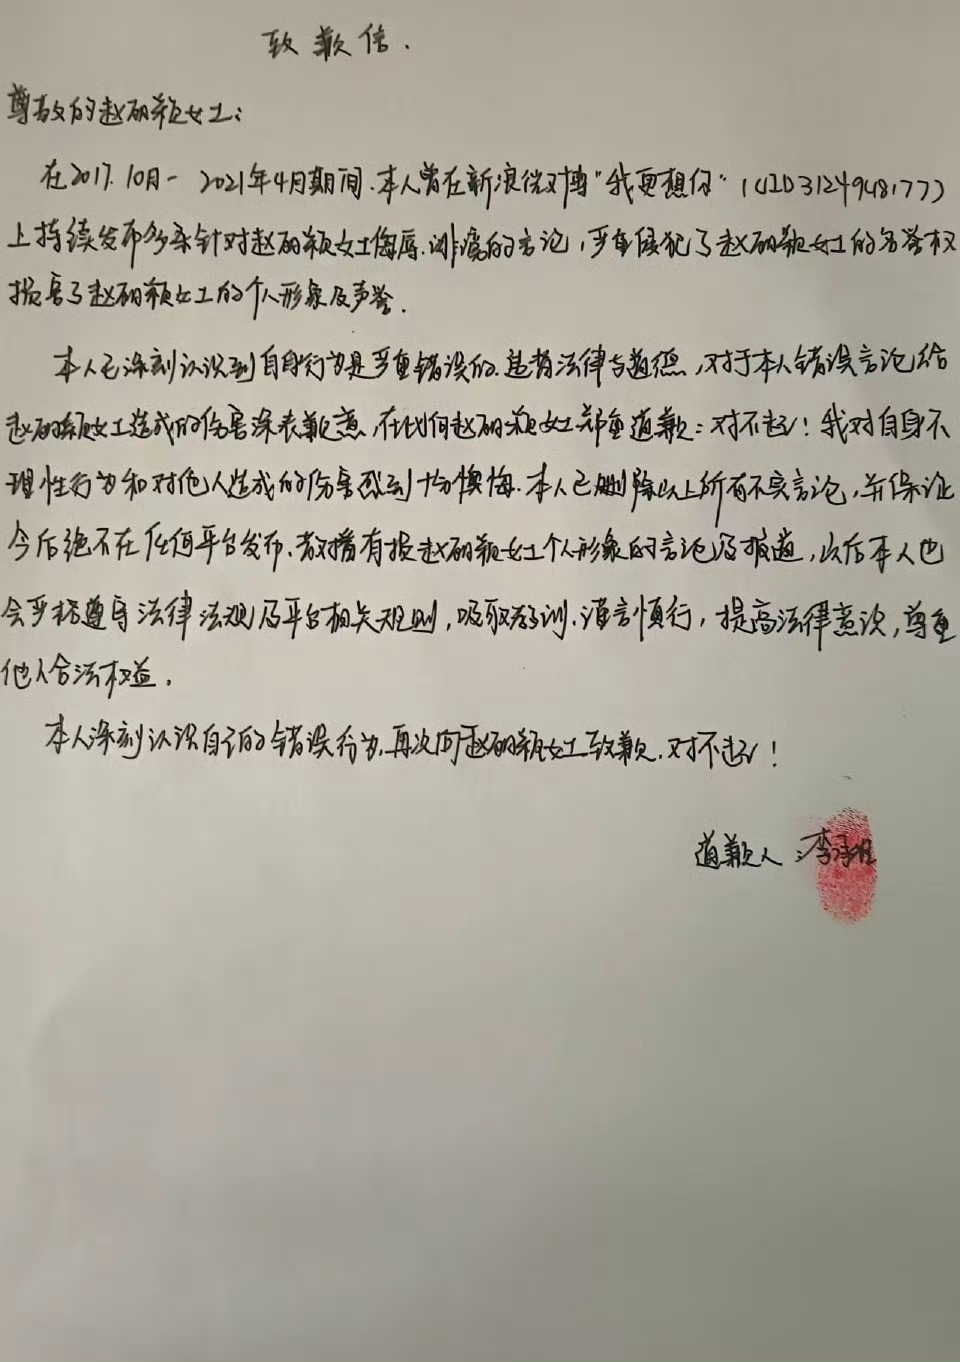 致歉信.
尊敬的赵丽颖女士:
在2017.10月-2021年4月期间.本人曾在新浪微博"我更想你"(UID3124948177)
上持续发布多条针对赵丽颖女士侮辱.诽谤的言论,严重侵犯了赵丽颖女士的名誉权
损害了赵丽颖女士的个人形象及声誉.
本人已深刻认识到自身行为是严重错误的.违背法律与道德,对于本人错误言论给
赵丽颖女士造成的伤害深表歉意,在此向赵丽颖女士郑重道歉:对不起!我对自身不
理性行为和对他人造成的伤害感到十分懊悔.本人已删除以上所有不实言论,并保证
今后绝不在任何平台发布、散播有损赵丽颖女士个人形象的言论及报道,以后本人也
会严格遵守法律法规及平台相关规则,吸取教训.谨言慎行,提高法律意识,尊重
他人合法权益.
本人深刻认识自己的错误行为,再次向赵丽颖女士致歉.对不起!
道歉人:李